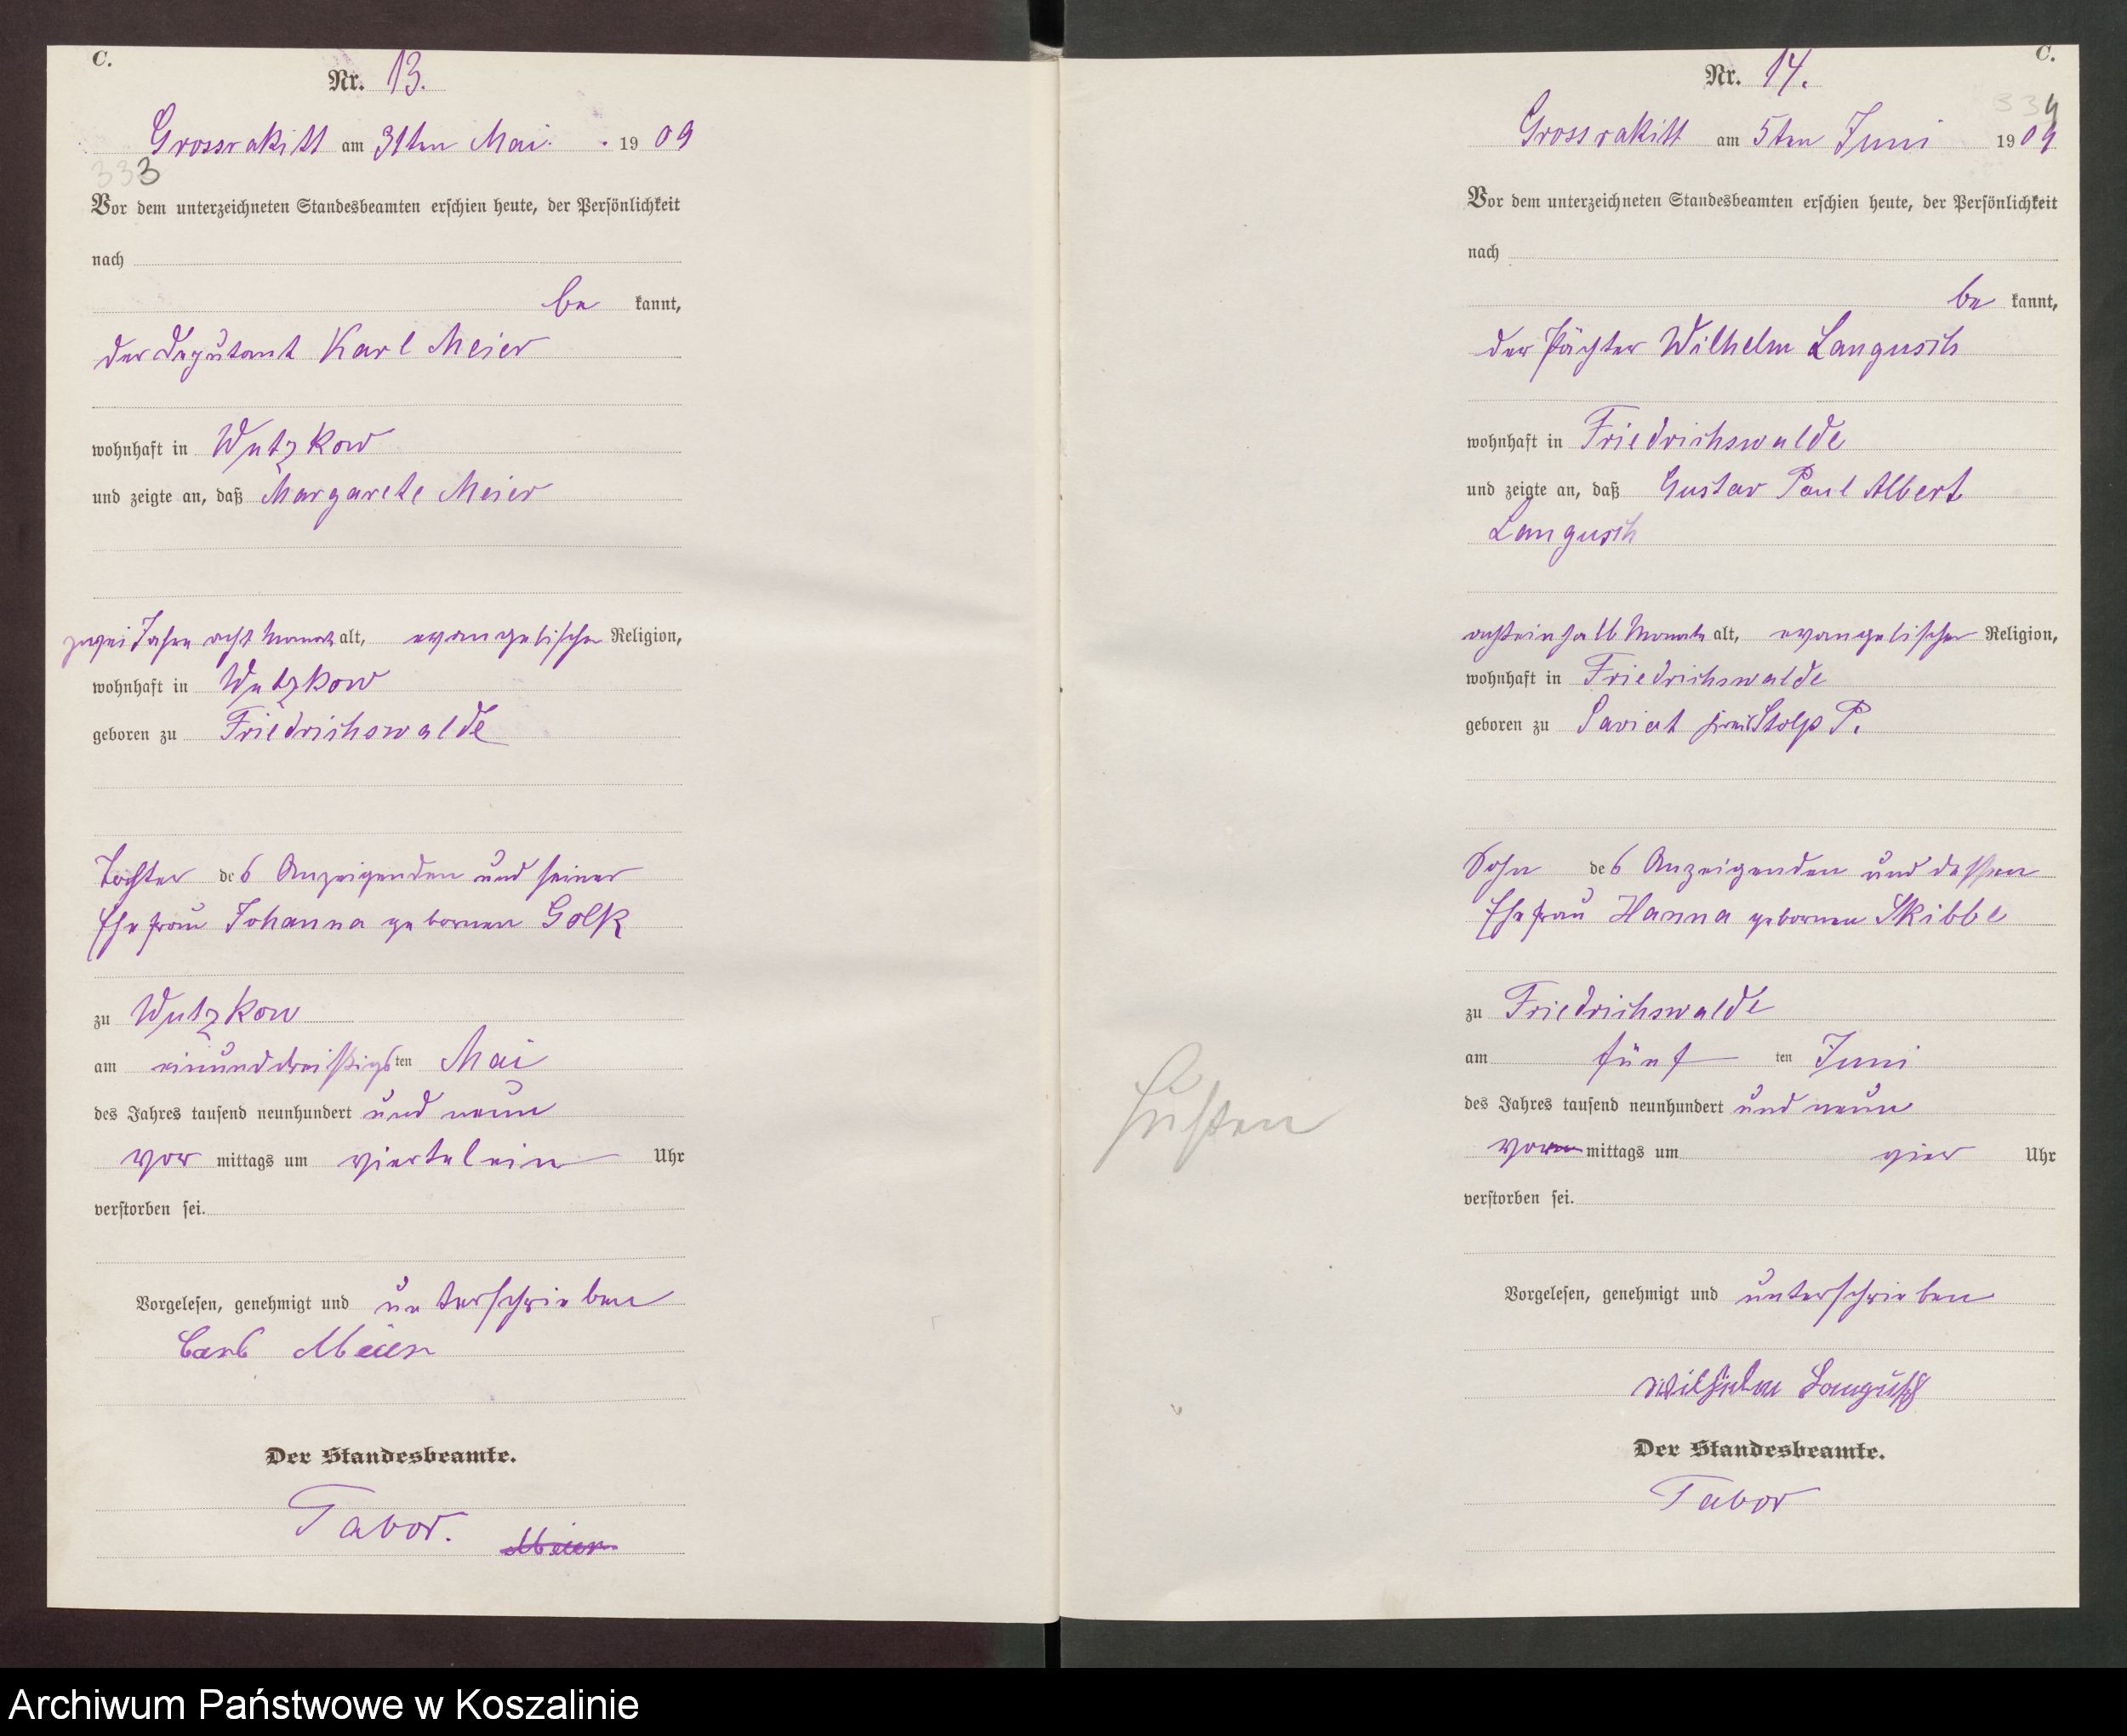 C.
Nr. 13.
Grossrakitt am 31ten Mai. 1909
333
Vor dem unterzeichneten Standesbeamten erschien heute, der Persönlichkeit
nach
be kannt,
der Deputant Karl Meier
wohnhaft in Wutzkow
und zeigte an, daß Margarete Meier
zwei Jahre acht Monate alt, evangelischer Religion,
wohnhaft in Wutzkow
geboren zu Friedrichswalde
Tochter des Anzeigenden und seiner
Ehefrau Johanna gebornen Golk
zu Wutzkow
am einunddreißigsten Mai
des Jahres tausend neunhundert und neun
vor mittags um viertelein Uhr
verstorben sei.
Vorgelesen, genehmigt und unterschrieben
Carl Meier
Der Standesbeamte.
Tabor. Meier
C.
Nr. 14.
334
Grossrakitt am 5ten Juni 1909
Vor dem unterzeichneten Standesbeamten erschien heute, der Persönlichkeit
nach
be kannt,
der Pächter Wilhelm Langusch
wohnhaft in Friedrichswalde
und zeigte an, daß Gustav Paul Albert
Langusch
achteinhalb Monate alt, evangelischer Religion,
wohnhaft in Friedrichswalde
geboren zu Saviat Kreis Stolp P.
Sohn des Anzeigenden und dessen
Ehefrau Hanna gebornen Skibbe
zu Friedrichswalde
am fünf ten Juni
des Jahres tausend neunhundert und neun
vor mittags um vier Uhr
verstorben sei.
Vorgelesen, genehmigt und unterschrieben
Wilhelm Langusch
Der Standesbeamte.
Tabor
Husten
Archiwum Państwowe w Koszalinie